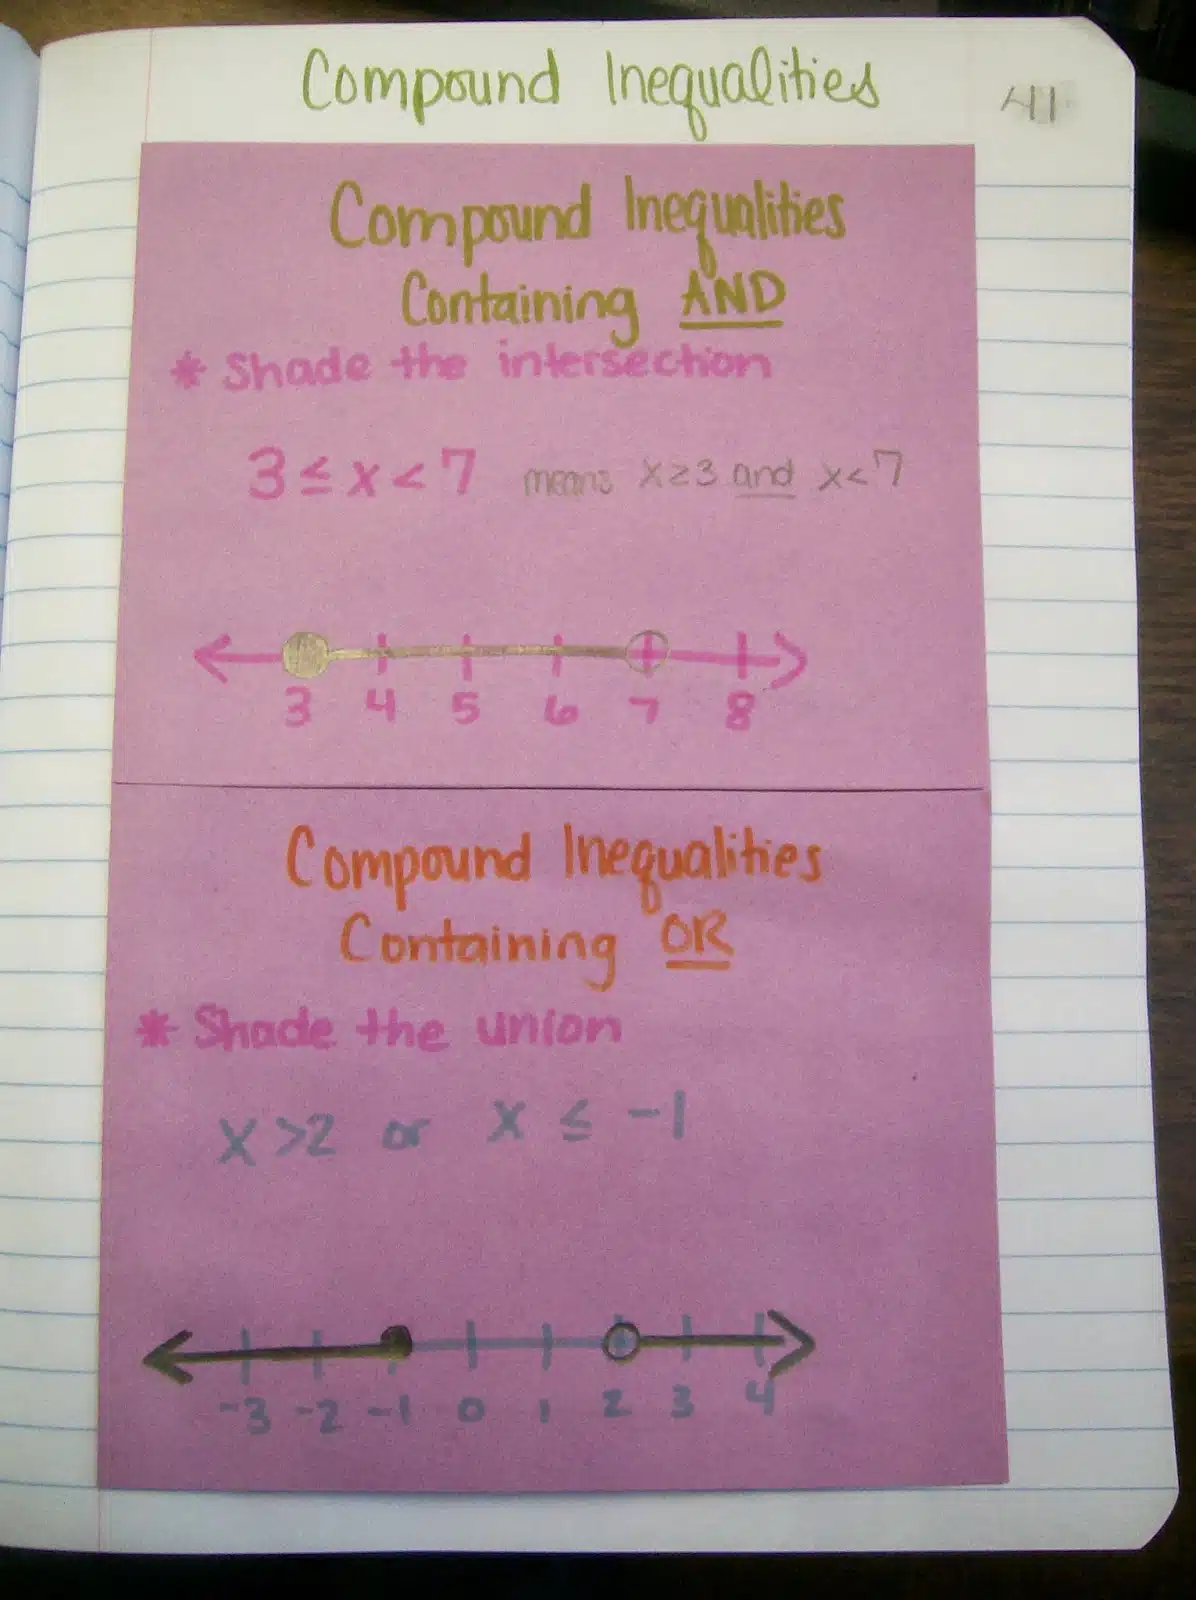 Compound Inequalities
41
Compound Inequalities
Containing AND
* Shade the intersection
3 ≤ x < 7 means x ≥ 3 and x < 7
3 4 5 6 7 8
Compound Inequalities
Containing OR
* Shade the union
x > 2 or x ≤ -1
-3 -2 -1 0 1 2 3 4